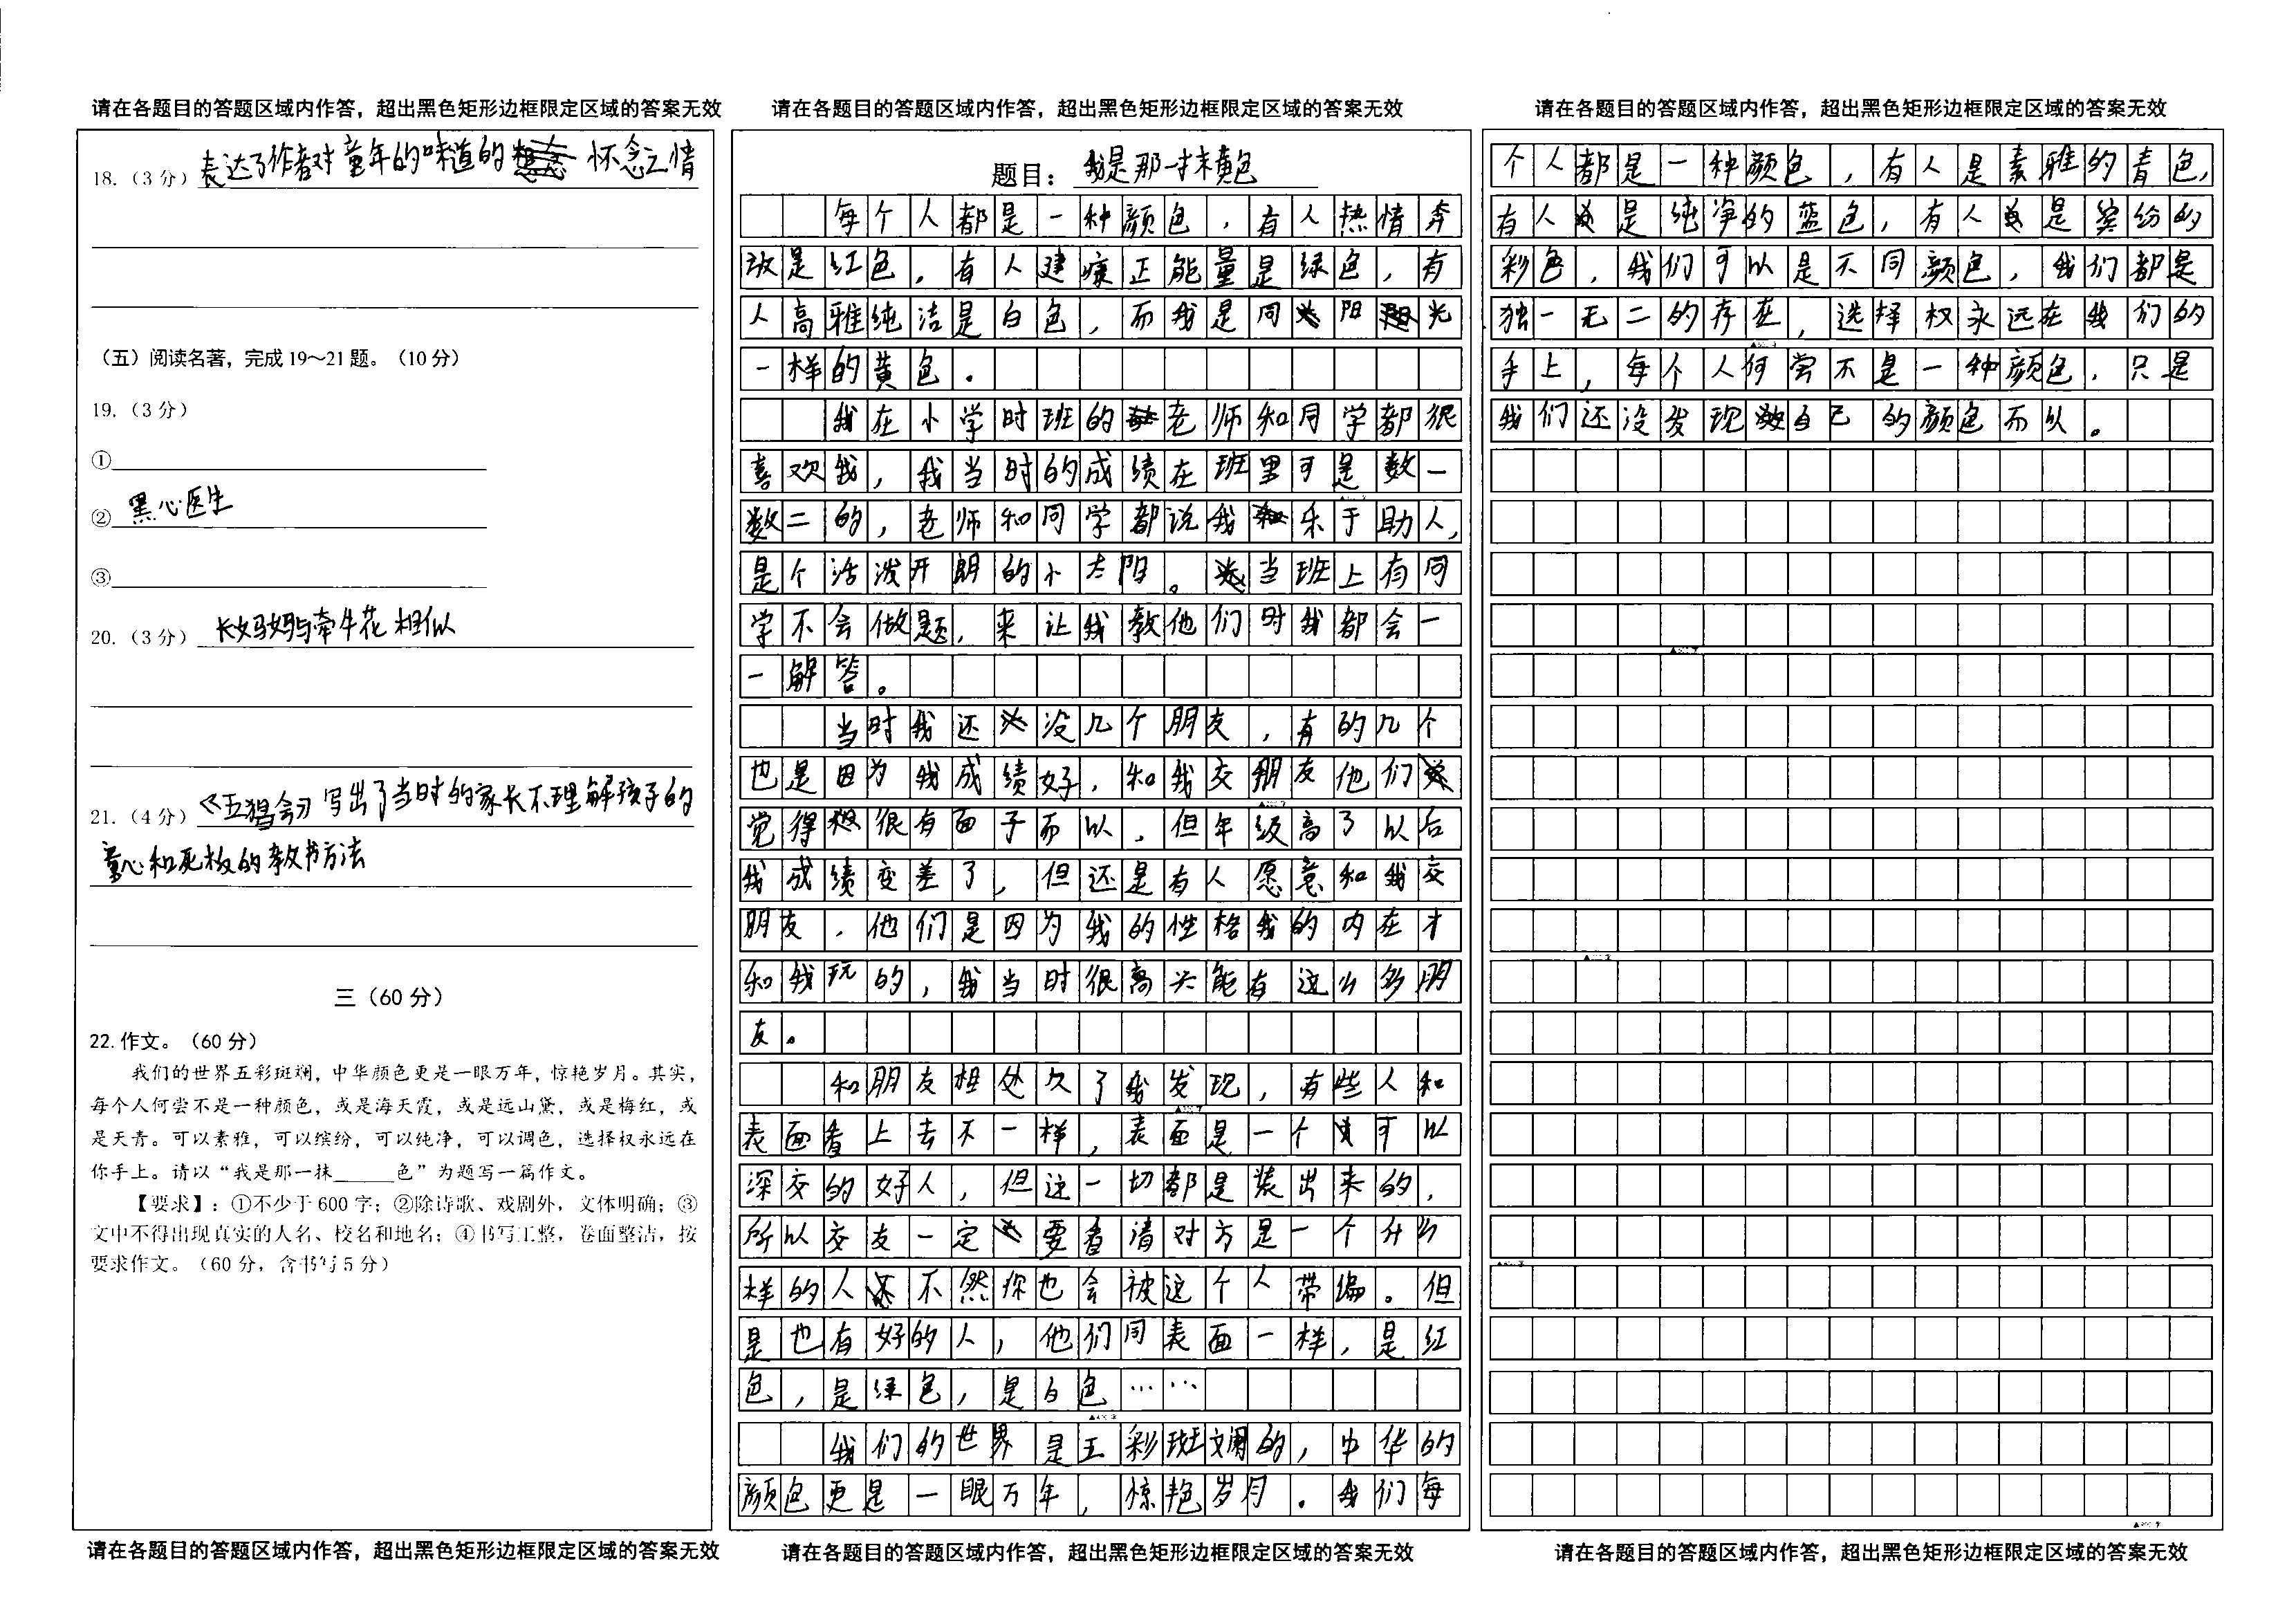 请在各题目的答题区域内作答，超出黑色矩形边框限定区域的答案无效
18.（3分）表达了作者对童年的味道的怀念之情
（五）阅读名著，完成19～21题。（10分）
19.（3分）
①
②黑心医生
③
20.（3分）长妈妈与牵牛花相似
21.（4分）《五猖会》写出了当时的家长不理解孩子的
童心和死板的教书方法
三（60分）
22.作文。（60分）
我们的世界五彩斑斓，中华颜色更是一眼万年，惊艳岁月。其实，
每个人何尝不是一种颜色，或是海天霞，或是远山黛，或是梅红，或
是天青。可以素雅，可以缤纷，可以纯净，可以调色，选择权永远在
你手上。请以“我是那一抹______色”为题写一篇作文。
【要求】：①不少于600字；②除诗歌、戏剧外，文体明确；③
文中不得出现真实的人名、校名和地名；④书写工整，卷面整洁，按
要求作文。（60分，含书写5分）
请在各题目的答题区域内作答，超出黑色矩形边框限定区域的答案无效
请在各题目的答题区域内作答，超出黑色矩形边框限定区域的答案无效
题目：我是那一抹黄色
每个人都是一种颜色，有人热情奔
放是红色，有人建康正能量是绿色，有
人高雅纯洁是白色，而我是同阳光
一样的黄色．
我在小学时班的老师和同学都很
喜欢我，我当时的成绩在班里可是数一
数二的，老师和同学都说我乐于助人，
是个活泼开朗的小太阳。当班上有同
学不会做题，来让我教他们时我都会一
一解答。
当时我还没几个朋友，有的几个
也是因为我成绩好，和我交朋友他们
觉得很有面子而以，但年级高了以后
我成绩变差了，但还是有人愿意和我交
朋友，他们是因为我的性格我的内在才
和我玩的，我当时很高兴能有这么多朋
友。
和朋友相处久了我发现，有些人和
表面看上去不一样，表面是一个可以
深交的好人，但这一切都是装出来的，
所以交友一定要看清对方是一个什么
样的人不然你也会被这个人带偏。但
是也有好的人，他们同表面一样，是红
色，是绿色，是白色……
我们的世界是五彩斑斓的，中华的
颜色更是一眼万年，惊艳岁月．我们每
请在各题目的答题区域内作答，超出黑色矩形边框限定区域的答案无效
请在各题目的答题区域内作答，超出黑色矩形边框限定区域的答案无效
个人都是一种颜色，有人是素雅的青色，
有人是纯净的蓝色，有人是缤纷的
彩色，我们可以是不同颜色，我们都是
独一无二的存在，选择权永远在我们的
手上，每个人何尝不是一种颜色，只是
我们还没发现自己的颜色而以。
请在各题目的答题区域内作答，超出黑色矩形边框限定区域的答案无效